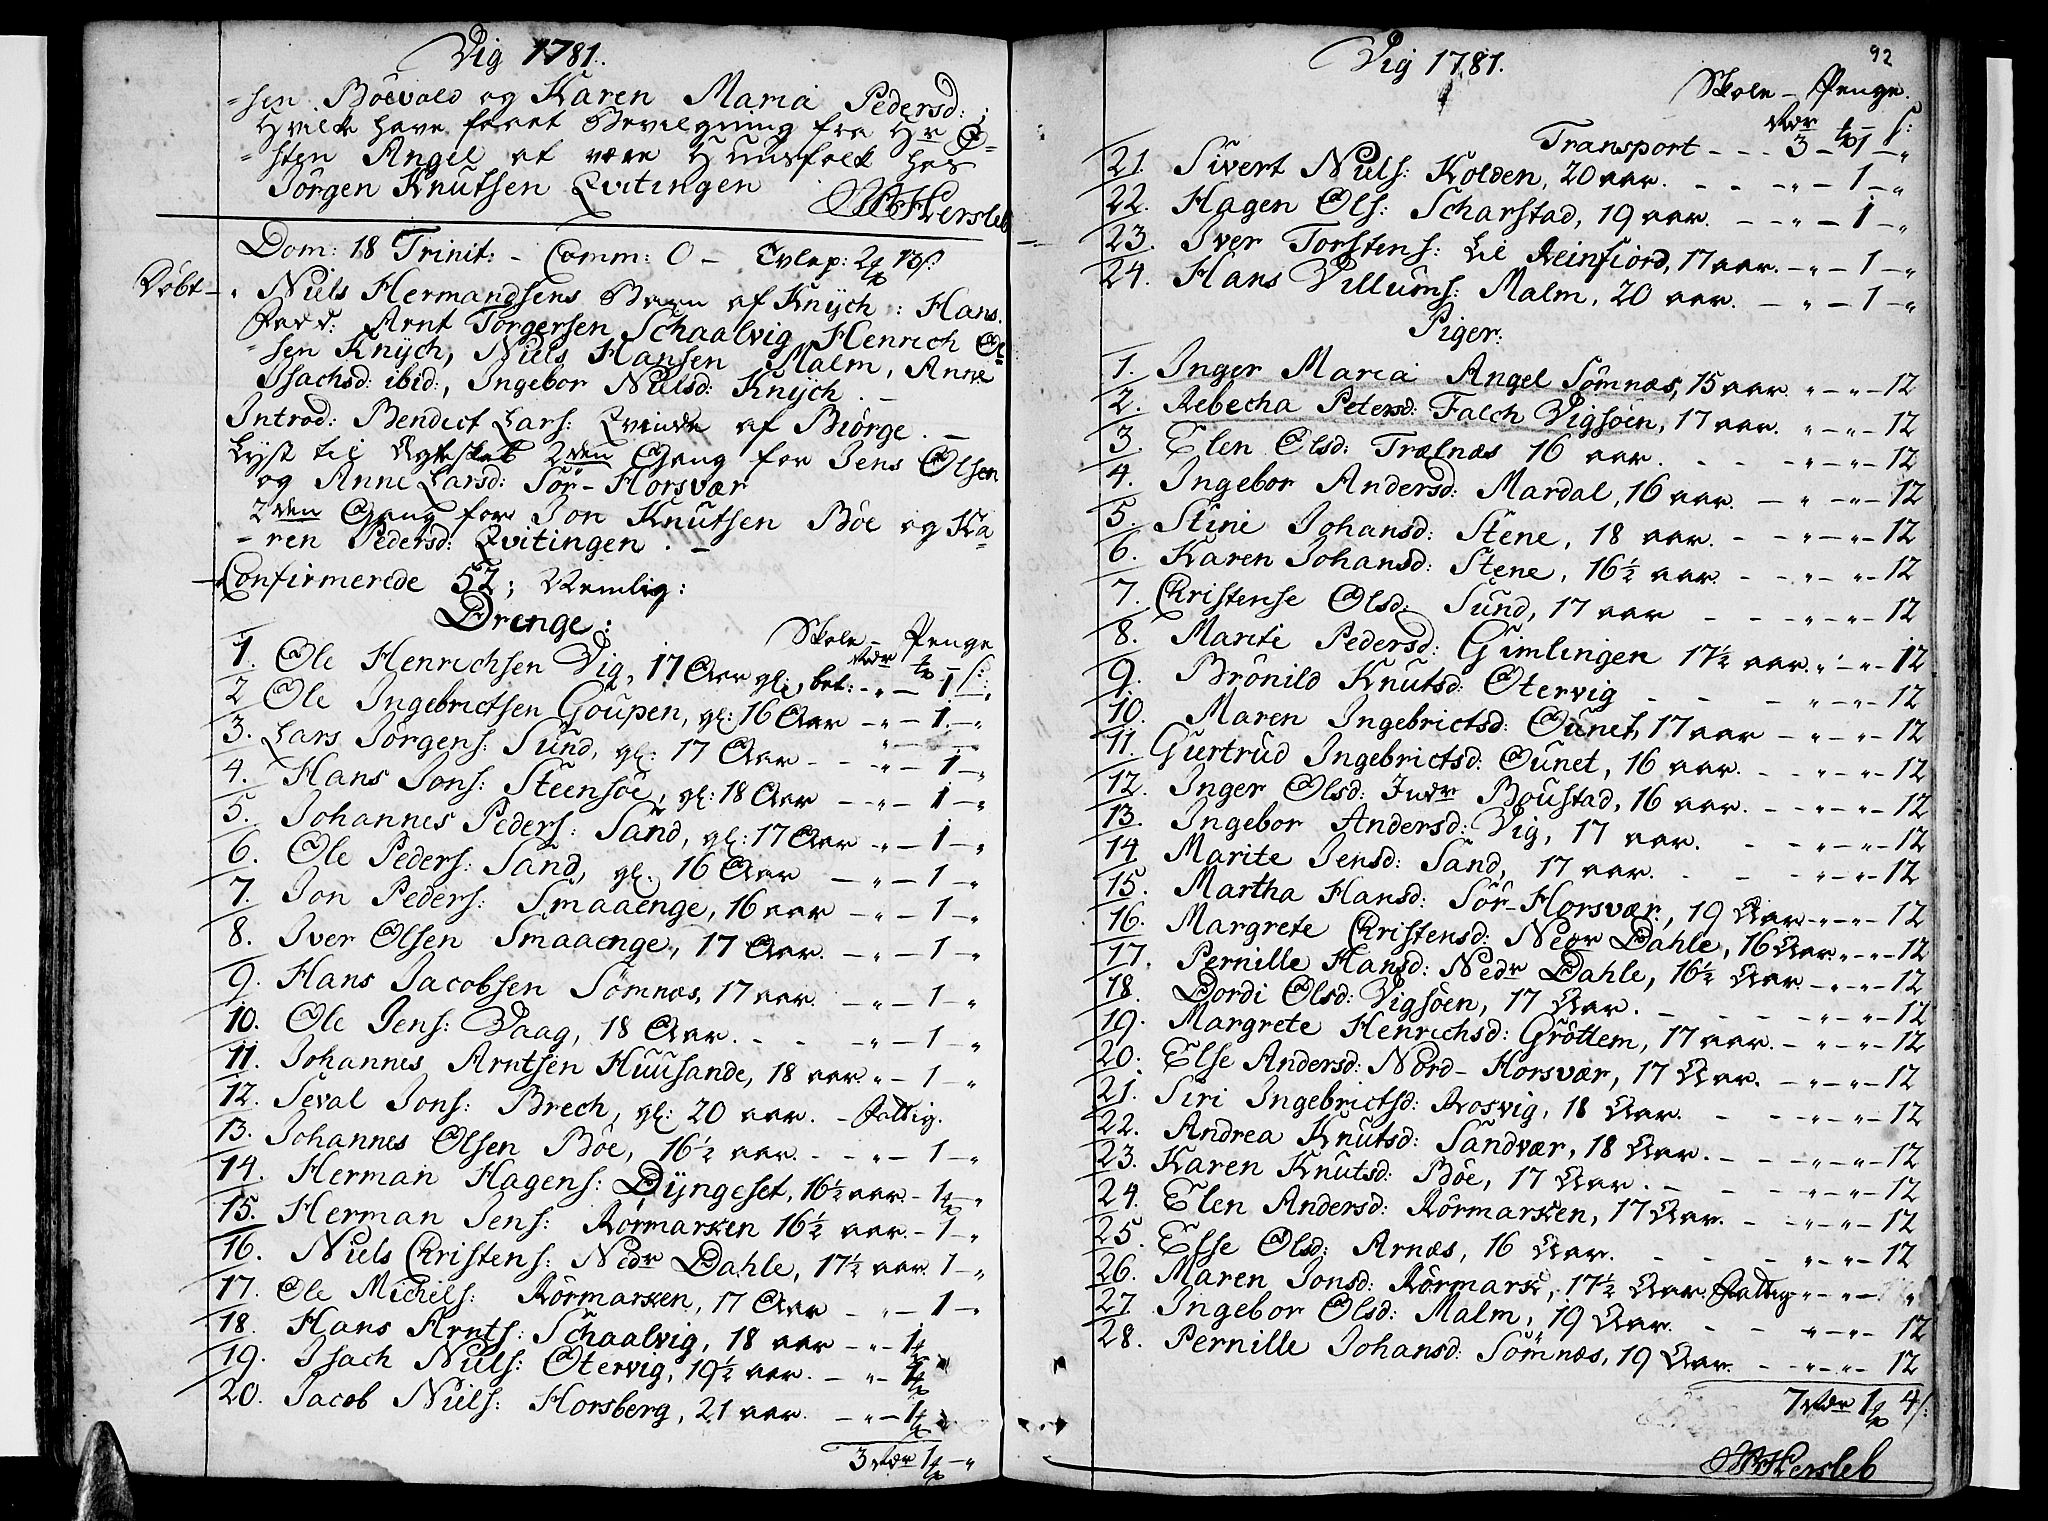 Vig 1781.
=sen Böevold og Karen Maria Pedersd:;
Hvilke have faaet Bevilgning fra Hr C=
=sten Angel at være Huusfolk hos
Jörgen Knutsen Qvitingen
Hersleb
Dom: 18 Trinit: - Comm: 0 - Tvlap: 2 13ß:
Döbt - Niels Hermandsens Barn af Knÿch: Hans.
Fadd: Arnt Torgersen Schaalvig, Henrich Ol=
=sen Knÿch, Niels Hansen Malm, Anne
Isachsd: ibid:, Ingebor Nielsd: Knÿch. -
Introd: Bendict Lars: Qvinde af Biörge. -
Lyst til Ægteskab 2den Gang for Jens Olsen
og Anne Larsd: Sör-Horsvær
2den Gang for Jon Knutsen Böe og Ka=
=ren Pedersd: Qvitingen. -
Confirmerede 52; Nemlig:
Drenge:
Skole - Penge
1. Ole Henrichsen Vig, 17 Aar gl:, bet: - " - 1 - "
2 Ole Ingebrictsen Goupen, gl: 16 Aar - " - 1 - "
3. Lars Jörgens: Sund, gl: 17 Aar - - " - 1 - "
4. Hans Jons: Steensöe, gl: 18 Aar - " - 1 - "
5. Johannes Peders: Sand, gl: 17 Aar - " - 1 - "
6. Ole Peders: Sand, gl. 16 Aar - " - 1 - "
7. Jon Peders: Smaaenge, 16 aar - " - 1 - "
8. Iver Olsen Smaaenge, 17 Aar. - " - 1 - "
9. Hans Jacobsen Sömnæs, 17 aar. - " - 1 - "
10. Ole Jens: Vaag, 18 Aar. - - " - 1 - "
11. Johannes Arntsen Huusande, 18 aar. " - 1 - "
12. Seval Jons: Brech, gl: 20 aar. - Fattig.
13. Johannes Olsen Böe, 16½ aar. - - " - 1 - "
14. Herman Hagens: Dÿngeset, 16½ aar. - 1 - "
15. Herman Jens: Rörmarken 16½ aar. - 1 - "
16. Niels Christens: Nedr Dahle, 17½ aar. 1 - "
17. Ole Michels: Rörmarken, 17 Aar - " - 1 - "
18. Hans Arnts: Schaalvig, 18 aar - " - 1
19. Isach Niels: Otervig, 19½ aar. - " - 1
20. Jacob Niels: Horsberg, 21 aar. - " - 1
3 Rdr 1 - "
Vig 1781.
92
Skole - Penge.
Rdr ß:
Transport - - - 3 - 1 - "
21. Sivert Niels: Kolden, 20 aar. - - " - 1 - "
22. Hagen Ols: Scharstad, 19 aar. - " - 1 - "
23. Iver Torstens: Lil Reinfiord, 17 aar. - " - 1 - "
24. Hans Villums: Malm, 20 aar. - " - 1 - "
Piger:
1. Inger Maria Angel Sömnæs, 15 aar " - " - 12
2. Rebecha Petersd: Falch Vigsöen, 17 aar. " - " - 12
3. Elen Olsd: Trælnæs 16 aar. - - " - " - 12
4. Ingebor Andersd: Mardal, 16 aar. - " - " - 12
5. Stine Johansd: Stene, 18 aar. - " - " - 12
6. Karen Johansd: Stene, 16½ aar. - " - " - 12
7. Christense Olsd: Sund, 17 aar - - " - " - 12
8. Marite Pedersd: Gimlingen 17½ aar. " - " - 12
9. Brönild Knutsd: Otervig - - - " - " - 12
10. Maren Ingebrictsd: Ounet, 17 aar - " - " - 12
11. Guertrud Ingebrictsd: Ounet, 16 aar. - " - " - 12
12. Inger Olsd: Indr Boustad, 16 aar. - " - " - 12
13. Ingebor Andersd: Vig, 17 aar. - - " - " - 12
14 Marite Jensd: Sand, 17 aar. - - " - " - 12
15. Martha Hansd: Sör-Horsvær, 19 Aar - " - " - 12
16. Margrete Christensd: Nedr Dahle, 16 Aar " - " - 12
17. Pernille Hansd: Nedr Dahle, 16½ Aar - " - " - 12
18. Dordi Olsd: Vigsöen, 17 Aar. - - - " - " - 12
19. Margrete Henrichsd: Gröttem, 17 aar. - " - " - 12
20. Else Andersd: Nord-Horsvær, 17 Aar. - " - " - 12
21. Siri Ingebrictsd: Rosvig, 18 Aar. - - " - " - 12
22. Andrea Knutsd: Sandvær, 18 Aar. - - " - " - 12
23. Karen Knutsd: Böe, 17 Aar. - - - " - " - 12
24. Elen Andersd: Rörmarken, 17 Aar. - " - " - 12
25. Else Olsd: Arnæs, 16 Aar. - - - " - " - 12
26. Maren Jonsd: Rörmark, 17½ Aar. Fattig " - " - "
27 Ingebor Olsd: Malm, 19 Aar. - - " - " - 12
28. Pernille Johansd: Sömnæs, 19 Aar. - " - " - 12
7 Rdr 1 4ß:
Hersleb